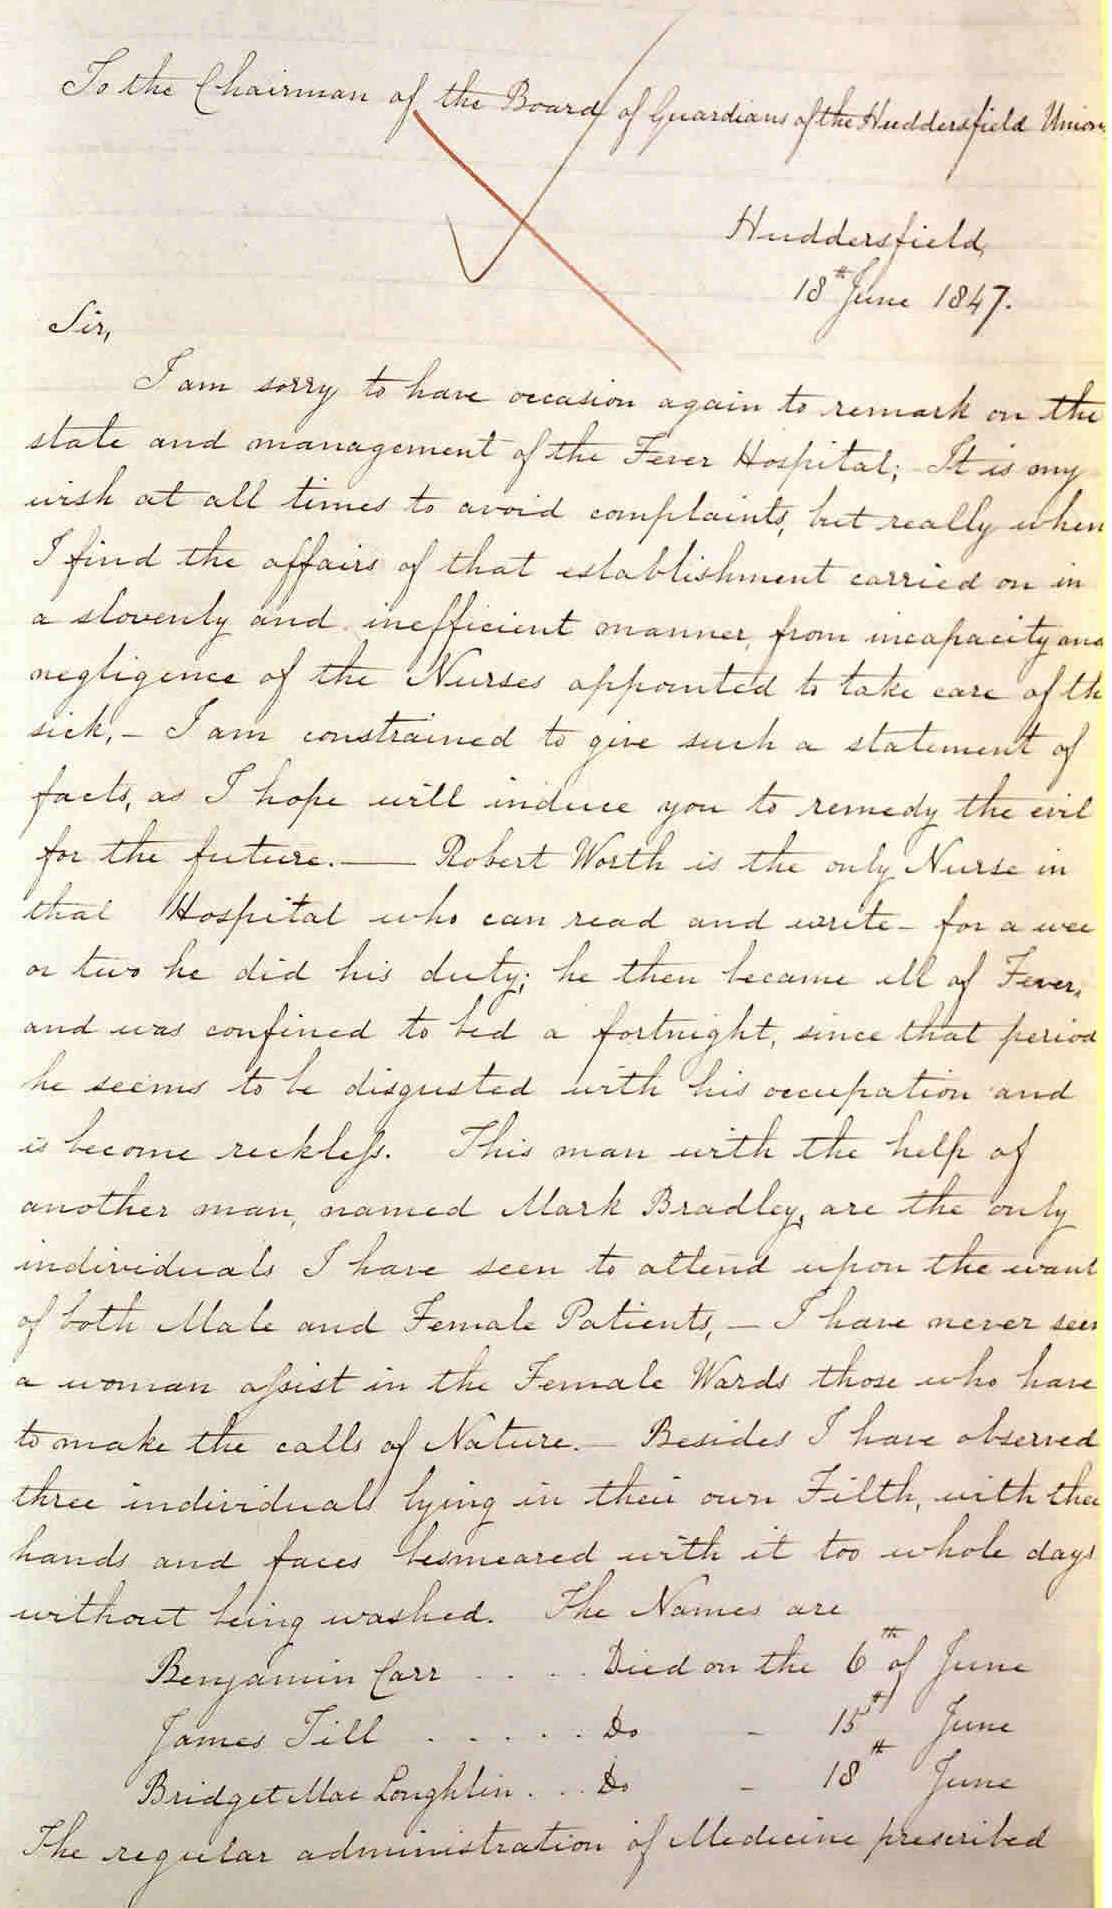 To the Chairman of the Board of Guardians of the Huddersfield Union
Huddersfield,
18th June 1847.
Sir,
I am sorry to have occasion again to remark on the
state and management of the Fever Hospital; It is my
wish at all times to avoid complaints, but really when
I find the affairs of that establishment carried on in
a slovenly and inefficient manner, from incapacity and
negligence of the Nurses appointed to take care of th
sick, – I am constrained to give such a statement of
facts, as I hope will induce you to remedy the evil
for the future. — Robert Worth is the only Nurse in
that Hospital who can read and write – for a wee
or two he did his duty; he then became ill of Fever,
and was confined to bed a fortnight, since that period
he seems to be disgusted with his occupation and
is become reckleſs. This man with the help of
another man, named Mark Bradley, are the only
individuals I have seen to attend upon the want
of both Male and Female Patients, – I have never seen
a woman aſsist in the Female Wards those who have
to make the calls of Nature. – Besides I have observed
three individuals lying in their own Filth, with thei
hands and faces besmeared with it too whole days
without being washed. The Names are
Benjamin Carr . . . . Died on the 6th of June
James Till . . . . . Do – 15th June
Bridget Mac Loughlin . . . Do – 18th June
The regular administration of Medicine prescribed